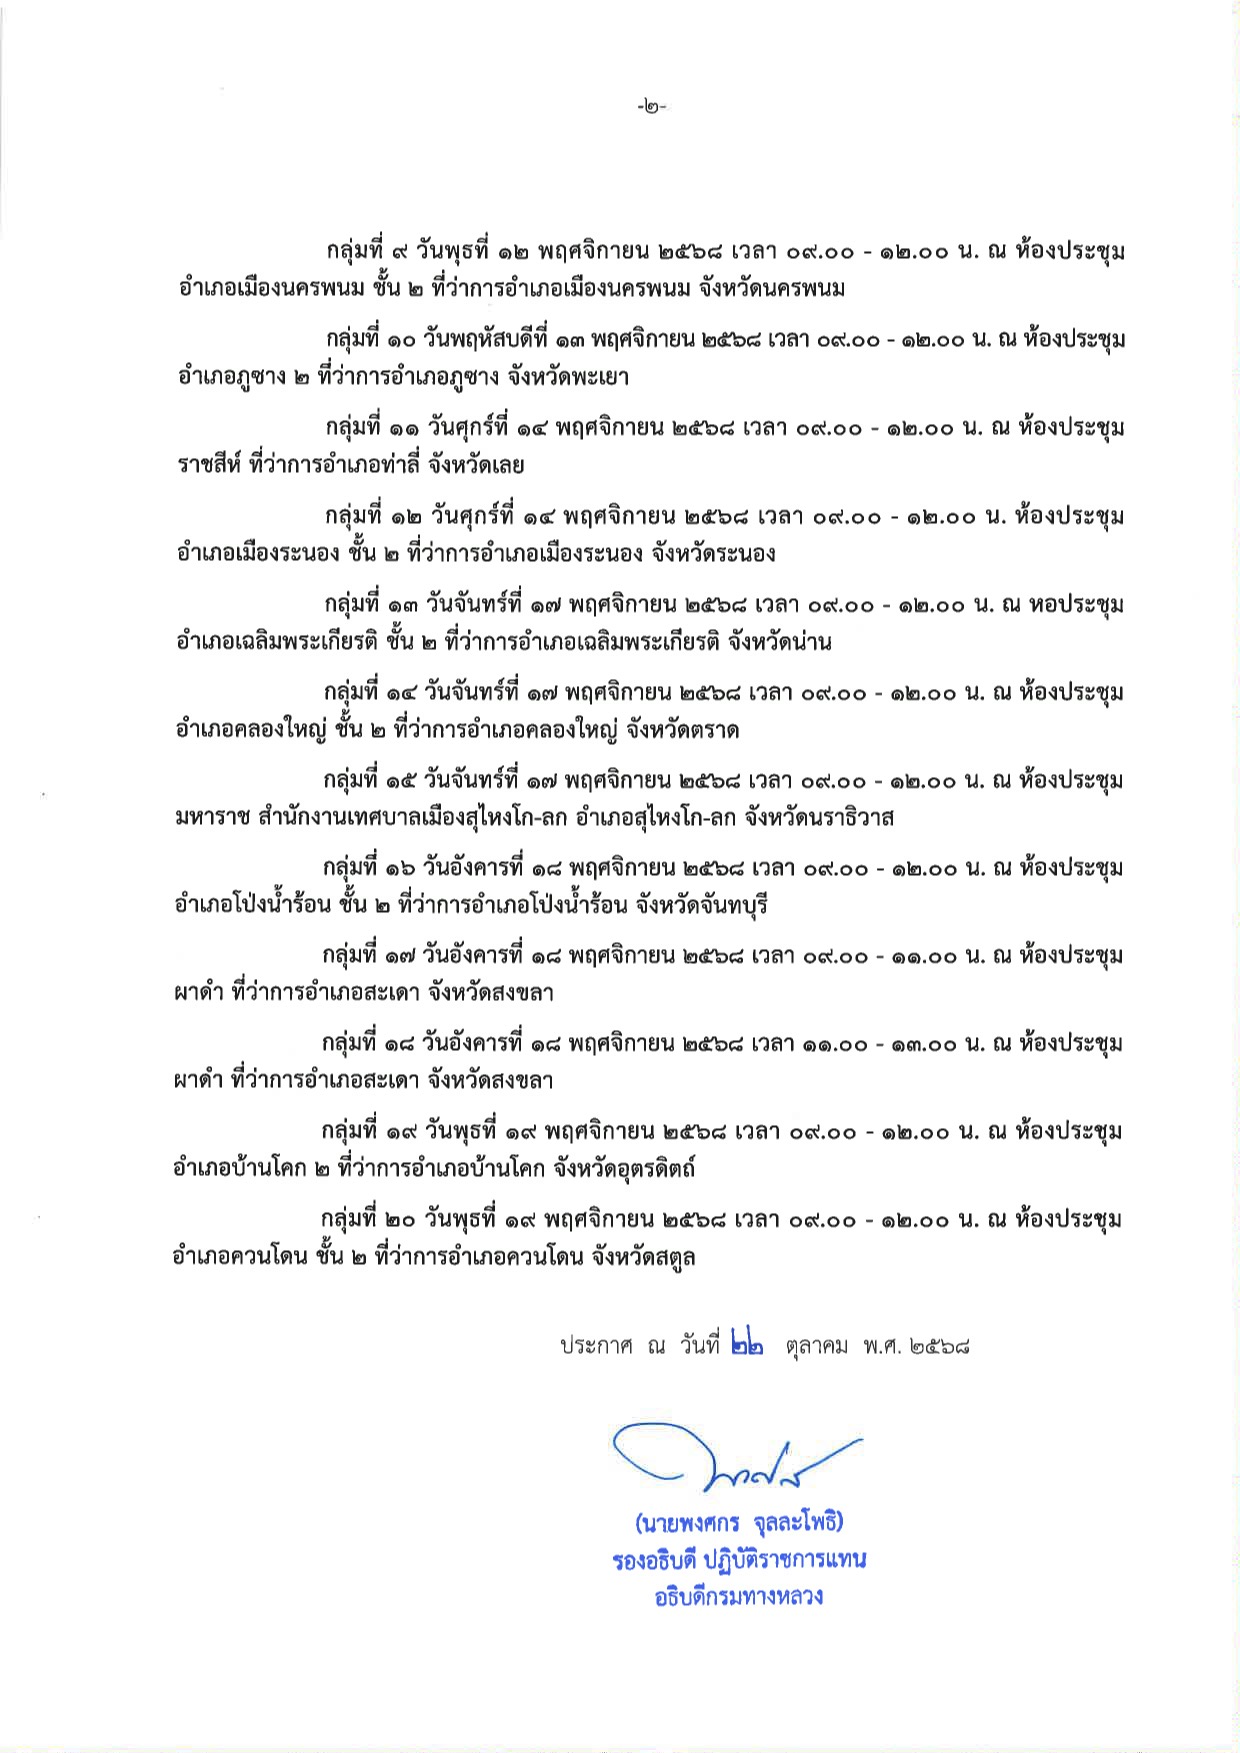 -๒-
กลุ่มที่ ๙ วันพุธที่ ๑๒ พฤศจิกายน ๒๕๖๘ เวลา ๐๙.๐๐ - ๑๒.๐๐ น. ณ ห้องประชุม
อำเภอเมืองนครพนม ชั้น ๒ ที่ว่าการอำเภอเมืองนครพนม จังหวัดนครพนม
กลุ่มที่ ๑๐ วันพฤหัสบดีที่ ๑๓ พฤศจิกายน ๒๕๖๘ เวลา ๐๙.๐๐ - ๑๒.๐๐ น. ณ ห้องประชุม
อำเภอภูซาง ๒ ที่ว่าการอำเภอภูซาง จังหวัดพะเยา
กลุ่มที่ ๑๑ วันศุกร์ที่ ๑๔ พฤศจิกายน ๒๕๖๘ เวลา ๐๙.๐๐ - ๑๒.๐๐ น. ณ ห้องประชุม
ราชสีห์ ที่ว่าการอำเภอท่าลี่ จังหวัดเลย
กลุ่มที่ ๑๒ วันศุกร์ที่ ๑๔ พฤศจิกายน ๒๕๖๘ เวลา ๐๙.๐๐ - ๑๒.๐๐ น. ห้องประชุม
อำเภอเมืองระนอง ชั้น ๒ ที่ว่าการอำเภอเมืองระนอง จังหวัดระนอง
กลุ่มที่ ๑๓ วันจันทร์ที่ ๑๗ พฤศจิกายน ๒๕๖๘ เวลา ๐๙.๐๐ - ๑๒.๐๐ น. ณ หอประชุม
อำเภอเฉลิมพระเกียรติ ชั้น ๒ ที่ว่าการอำเภอเฉลิมพระเกียรติ จังหวัดน่าน
กลุ่มที่ ๑๔ วันจันทร์ที่ ๑๗ พฤศจิกายน ๒๕๖๘ เวลา ๐๙.๐๐ - ๑๒.๐๐ น. ณ ห้องประชุม
อำเภอคลองใหญ่ ชั้น ๒ ที่ว่าการอำเภอคลองใหญ่ จังหวัดตราด
กลุ่มที่ ๑๕ วันจันทร์ที่ ๑๗ พฤศจิกายน ๒๕๖๘ เวลา ๐๙.๐๐ - ๑๒.๐๐ น. ณ ห้องประชุม
มหาราช สำนักงานเทศบาลเมืองสุไหงโก-ลก อำเภอสุไหงโก-ลก จังหวัดนราธิวาส
กลุ่มที่ ๑๖ วันอังคารที่ ๑๘ พฤศจิกายน ๒๕๖๘ เวลา ๐๙.๐๐ - ๑๒.๐๐ น. ณ ห้องประชุม
อำเภอโป่งน้ำร้อน ชั้น ๒ ที่ว่าการอำเภอโป่งน้ำร้อน จังหวัดจันทบุรี
กลุ่มที่ ๑๗ วันอังคารที่ ๑๘ พฤศจิกายน ๒๕๖๘ เวลา ๐๙.๐๐ - ๑๑.๐๐ น. ณ ห้องประชุม
ผาดำ ที่ว่าการอำเภอสะเดา จังหวัดสงขลา
กลุ่มที่ ๑๘ วันอังคารที่ ๑๘ พฤศจิกายน ๒๕๖๘ เวลา ๑๑.๐๐ - ๑๓.๐๐ น. ณ ห้องประชุม
ผาดำ ที่ว่าการอำเภอสะเดา จังหวัดสงขลา
กลุ่มที่ ๑๙ วันพุธที่ ๑๙ พฤศจิกายน ๒๕๖๘ เวลา ๐๙.๐๐ - ๑๒.๐๐ น. ณ ห้องประชุม
อำเภอบ้านโคก ๒ ที่ว่าการอำเภอบ้านโคก จังหวัดอุตรดิตถ์
กลุ่มที่ ๒๐ วันพุธที่ ๑๙ พฤศจิกายน ๒๕๖๘ เวลา ๐๙.๐๐ - ๑๒.๐๐ น. ณ ห้องประชุม
อำเภอควนโดน ชั้น ๒ ที่ว่าการอำเภอควนโดน จังหวัดสตูล
ประกาศ ณ วันที่ ๒๒ ตุลาคม พ.ศ. ๒๕๖๘
(นายพงศกร จุลละโพธิ)
รองอธิบดี ปฏิบัติราชการแทน
อธิบดีกรมทางหลวง